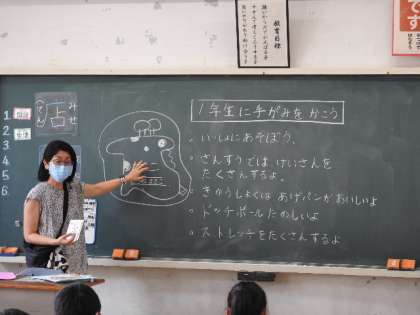 教育目標
です
1
2
3
4.
5.
6.
店
てん
みせ
国語
1年生に手がみをかこう
○ いっしょにあそぼう。
○ さんすうでは けいさんを
たくさんするよ。
○ きゅうしょくは あげパンがおいしいよ
○ ドッチボールたのしいよ
○ ストレッチをたくさんするよ